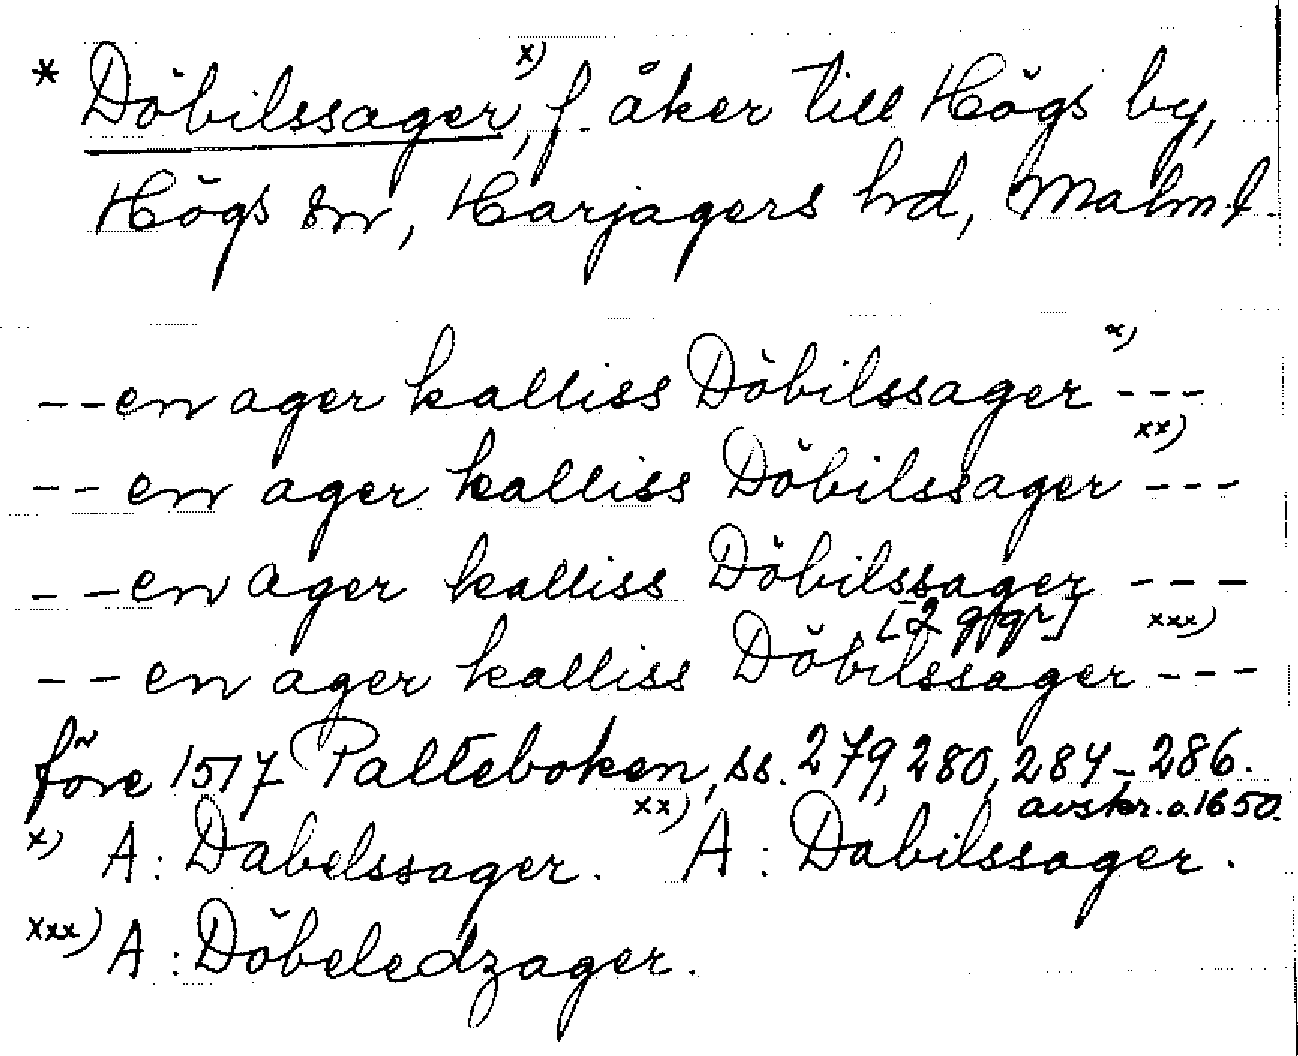 * Döbilssager, x) f. åker till Högs by,
Högs sn, Harjagers hd, Malm. l.
-- en ager kalliss Döbilssager x) ---
-- en ager kalliss Döbilssager xx) ---
-- en ager kalliss Döbilssager ---
[2 ggr]
-- en ager kalliss Döbilssager xxx) ---
före 1517 Palteboken, ss. 279, 280, 284-286.
avskr. o. 1650.
x) A: Dabelssager. xx) A: Dabilssager.
xxx) A: Döbeledzager.